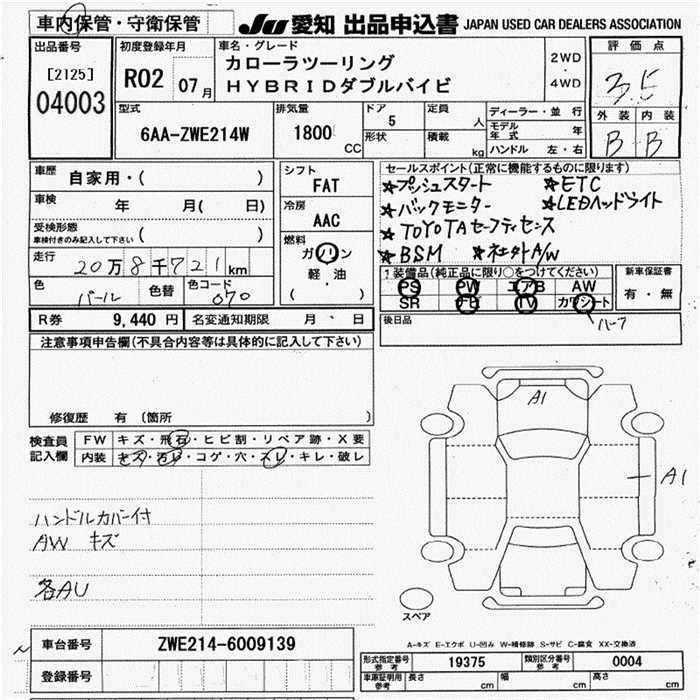 車内保管・守衛保管
JU 愛知 出品申込書 JAPAN USED CAR DEALERS ASSOCIATION
出品番号
[2125]
04003
初度登録年月
R02 07月
車名・グレード
カローラツーリング
HYBRIDダブルバイビ
2WD
・
4WD
評価点
3.5
外装 内装
B B
型式
6AA-ZWE214W
排気量
1800 CC
ドア
5
形状
定員
人
積載
kg
ディーラー・並行
モデル年式 年
ハンドル 左・右
車歴
自家用・( )
車検 年 月( 日)
受検形態
車検付きのみ記入して下さい ( )
走行
20万8千721km
色
パール
色替
色コード
070
シフト
FAT
冷房
AAC
燃料
ガソリン
軽油
( )
セールスポイント(正常に機能するものに限ります)
★プッシュスタート ★ETC
★バックモニター ★LEDヘッドライト
★TOYOTAセーフティセンス
★BSM ★社外A/W
1装備品(純正品に限り○をつけてください)
PS PW エアB AW
SR ナビ TV カワシート
ハーフ
新車保証書
有・無
後日品
R券 9,440円 名変通知期限 月、日
注意事項申告欄(不具合内容等は具体的に記入して下さい)
修復歴 有(箇所 )
検査員
記入欄
FW キズ・飛石・ヒビ割・リペア跡・X要
内装 キズ・汚レ・コゲ・穴・スレ・キレ・破レ
ハンドルカバー付
AW キズ
各AU
A1
A1
スペア
A-キズ E-エクボ U-凹み W-補修跡 S-サビ C-腐食 XX-交換済
車台番号 ZWE214-6009139
登録番号
形式指定番号
参考
19375
類別区分番号
参考
0004
車庫証明用
参考
長さ cm 幅 cm 高さ cm